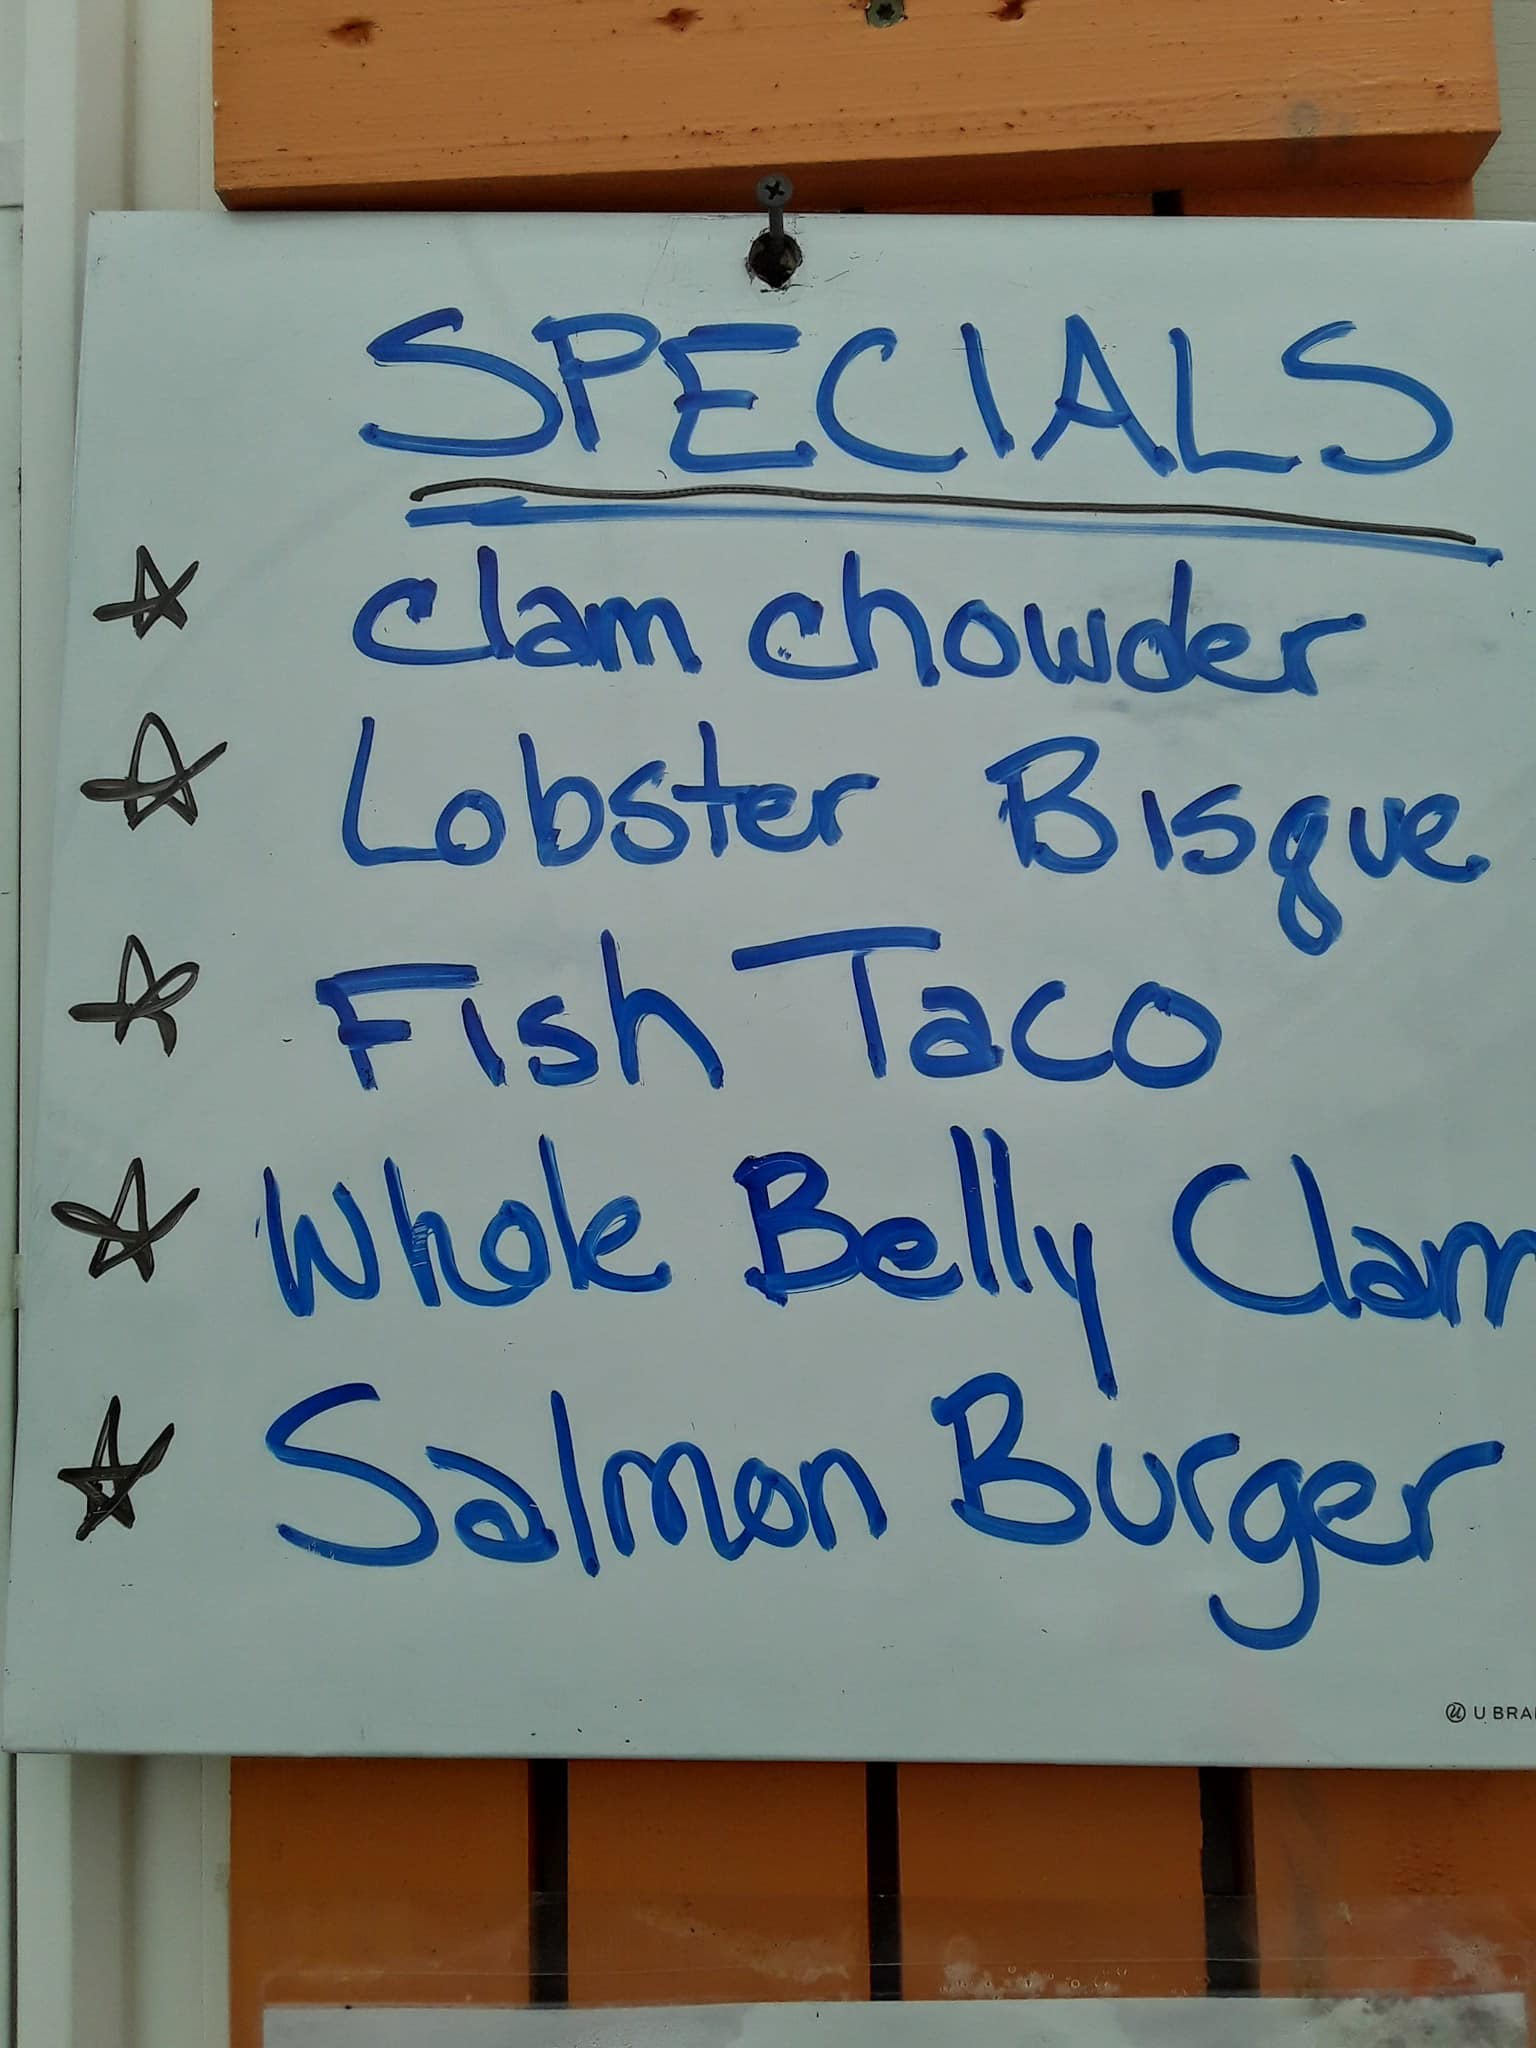 SPECIALS
Clam Chowder
Lobster Bisque
Fish Taco
Whole Belly Clam
Salmon Burger
U BRA